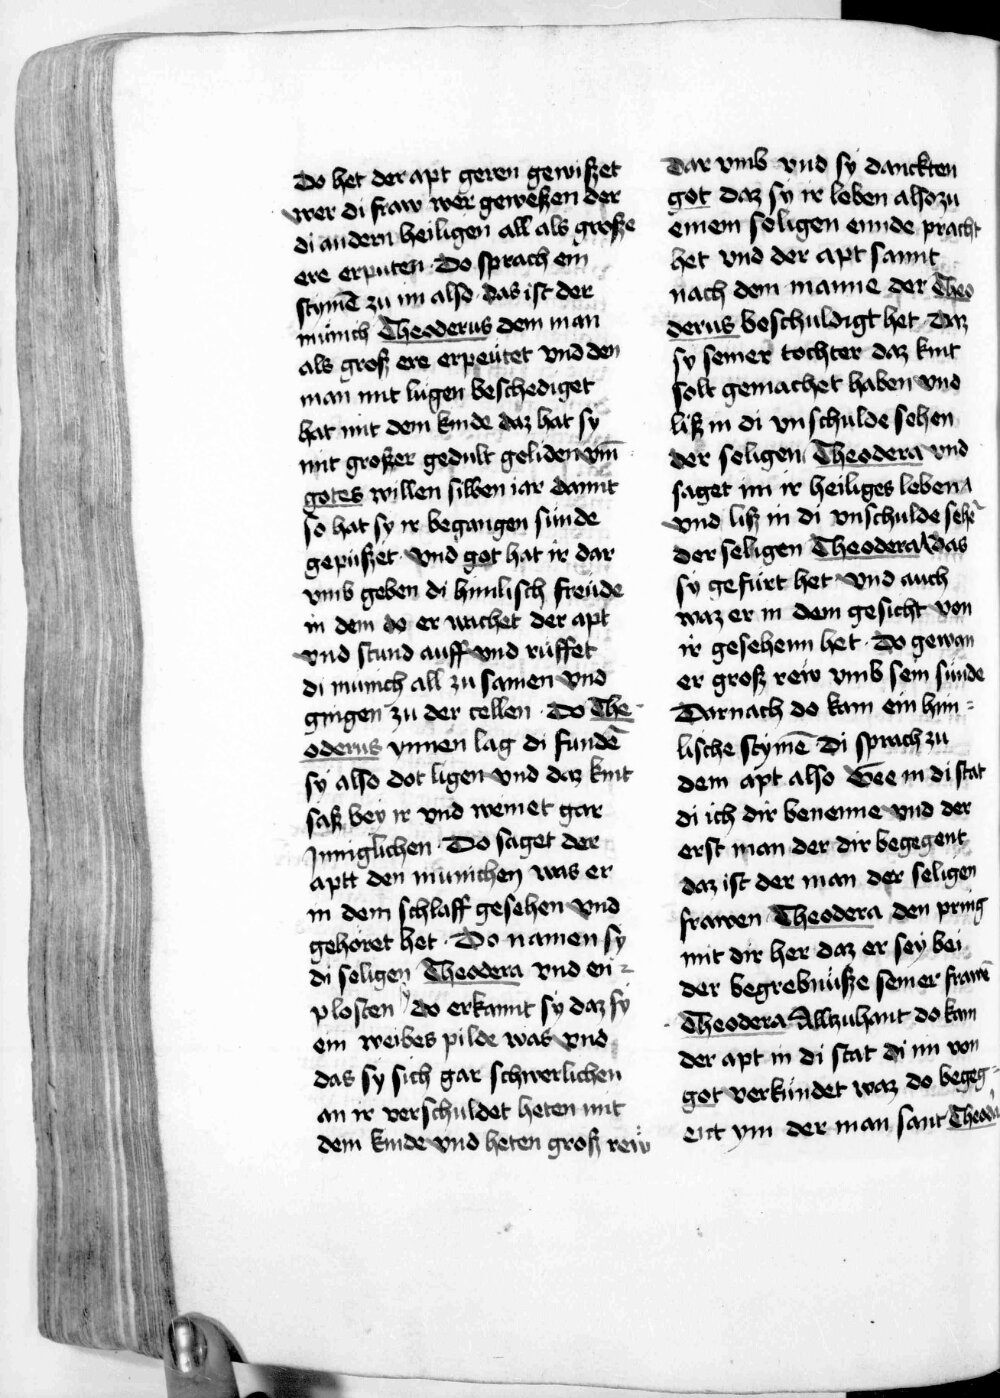 Do het der apt geren gewißet
wer di fraw wer geweßen der
di andern heiligen all als große
ere erputen · Do sprach ein
stymē zu im also · das ist der
münich Theoderus dem man
als groß ere erpeütet vnd den
man mit lugen beschediget
hat mit dem kinde daz hat sy
mit großer gedult geliden vm̄
gotes willen siben iar damit
so hat sy ir begangen sünde
gepüßet · vnd got hat ir dar
vmb geben di himlisch freüde
in dem do er wachet der apt
vnd stund auff vnd rüffet
di münich all zu samen vnd
gingen zu der cellen · Do The
oderus ynnen lag di fundē
sy also dot ligen vnd daz kint
saß bey ir vnd weinet gar
Inniglichen · Do saget der
aptt den münichen was er
in dem schlaff gesehen vnd
gehöret het · Do namen sy
di seligen Theodera vnd en
plosten do erkannt sy daz sy
ein weibes pilde was vnd
das sy sich gar schwerlichen
an ir verschuldet heten mit
dem kinde vnd heten groß rew
Dar vmb vnd sy danckten
got daz sy ir leben also zu
einem seligen ennde pracht
het vnd der apt sannt
nach dem manne der Theo
derus beschuldigt het Daz
sy seiner tochter daz kint
solt gemachet haben vnd
liß in di vnschulde sehen
der seligen Theodera vnd
saget im ir heiliges leben
vnd liß in di vnschulde sehē
der seligen Theodera das
sy gefürt het vnd auch
waz er in dem gesicht von
ir gesehenn het · Do gewan
er groß rew vmb sein sünde
Darnach do kam ein him =
lische stymē Di sprach zu
dem apt also Gee in di stat
di ich dir benenne vnd der
erst man der dir begegent
daz ist der man der seligen
frawen Theodera den pring
mit dir her daz er sey bei
der begrebnüße seiner frawē
Theodera Allzuhant do kam
der apt in di stat di im von
got verkündet waz do begeg =
ent ym der man sant